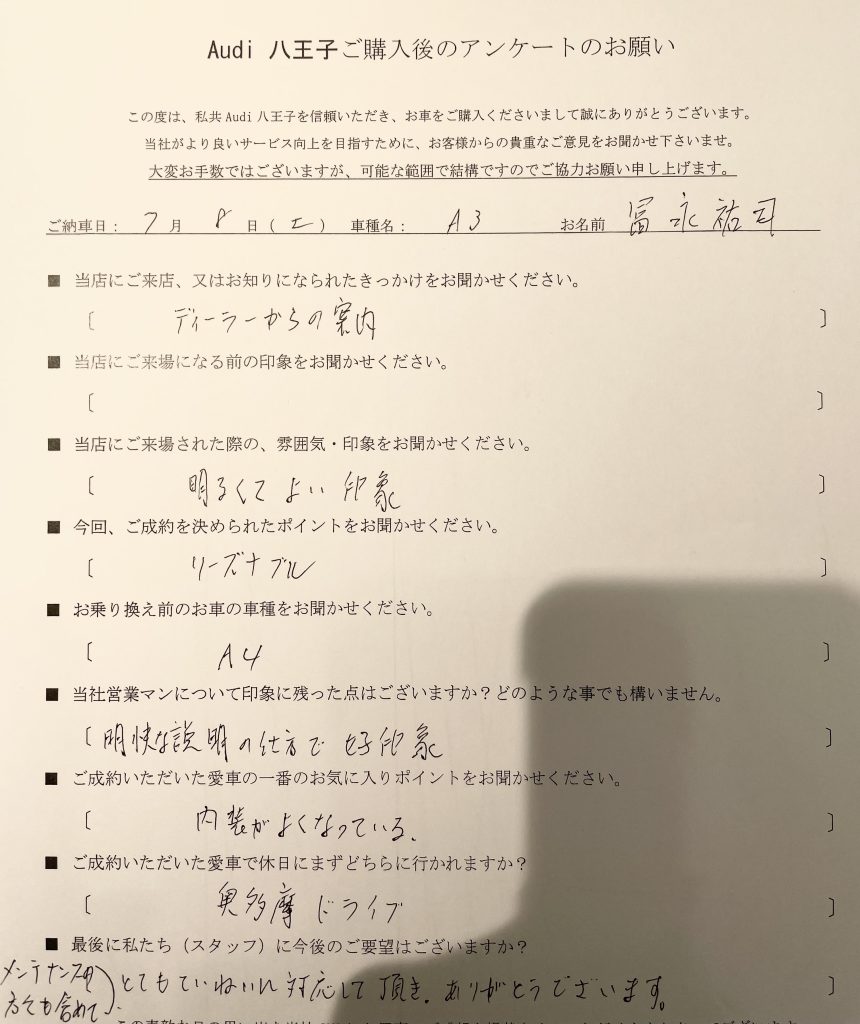 Audi 八王子ご購入後のアンケートのお願い
この度は、私共 Audi 八王子を信頼いただき、お車をご購入くださいまして誠にありがとうございます。
当社がより良いサービス向上を目指すために、お客様からの貴重なご意見をお聞かせ下さいませ。
大変お手数ではございますが、可能な範囲で結構ですのでご協力お願い申し上げます。
ご納車日： 7 月 8 日（土） 車種名： A3 お名前 冨永祐司
■ 当店にご来店、又はお知りになられたきっかけをお聞かせください。
〔 ディーラーからの案内 〕
■ 当店にご来場になる前の印象をお聞かせください。
〔 〕
■ 当店にご来場された際の、雰囲気・印象をお聞かせください。
〔 明るくてよい印象 〕
■ 今回、ご成約を決められたポイントをお聞かせください。
〔 リーズナブル 〕
■ お乗り換え前のお車の車種をお聞かせください。
〔 A4 〕
■ 当社営業マンについて印象に残った点はございますか？どのような事でも構いません。
〔 明快な説明の仕方で好印象 〕
■ ご成約いただいた愛車の一番のお気に入りポイントをお聞かせください。
〔 内装がよくなっている。 〕
■ ご成約いただいた愛車で休日にまずどちらに行かれますか？
〔 奥多摩ドライブ 〕
■ 最後に私たち（スタッフ）に今後のご要望はございますか？
メンテナンスの
方々も含めて） とてもていねいに対応して頂き、ありがとうございます。 〕